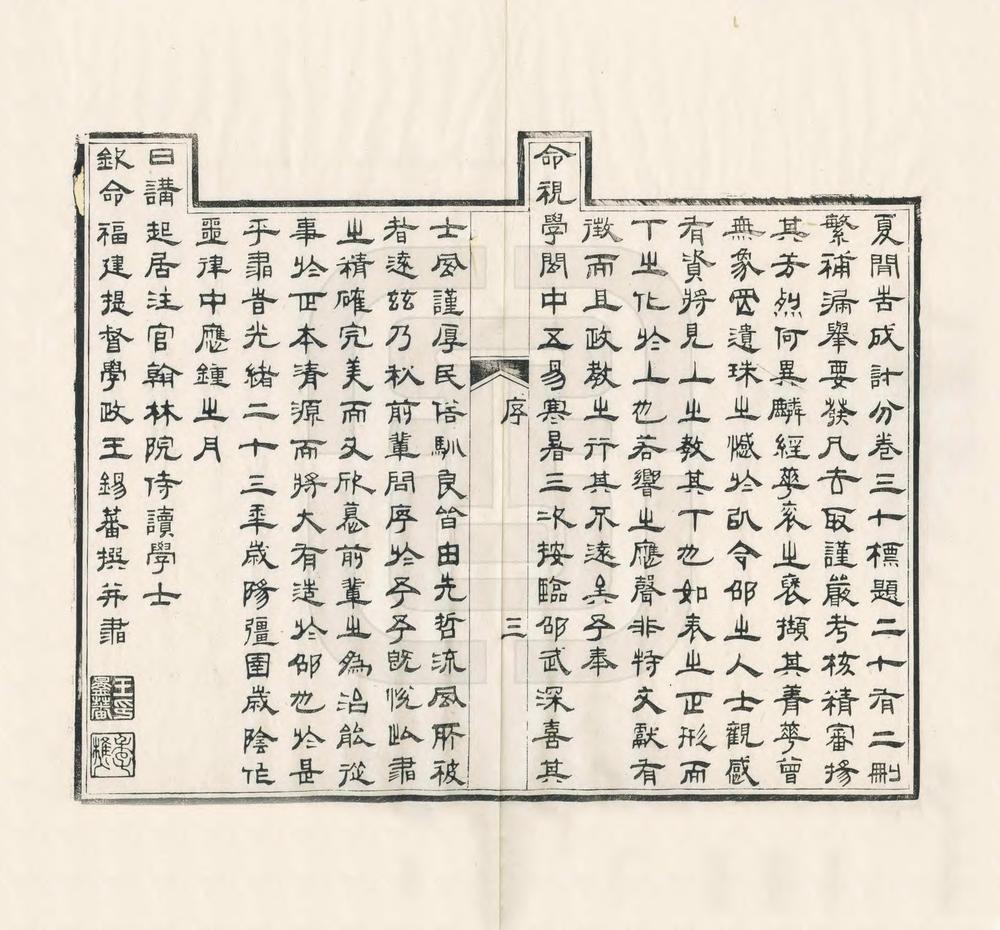 夏間告成計分卷三十標題二十有二刪
繁補漏舉要發凡去取謹嚴考核精審揚
其芳烈何異麟經華袞之襃擷其菁華曾
無象罔遺珠之憾於以令邵之人士觀感
有資將見上之教其下也如表之正形而
下之化於上也若響之應聲非特文獻有
徵而且政教之行其不遠矣予奉
命視學閩中五易寒暑三次按臨邵武深喜其
序
三
士風謹厚民俗馴良皆由先哲流風所被
者遠茲乃秋前輩問序於予予既悅此書
之精確完美而又欣慕前輩之為治能從
事於正本清源而將大有造於邵也於是
乎書旹光緒二十三年歲陽彊圉歲陰作
噩律中應鍾之月
日講起居注官翰林院侍讀學士
欽命福建提督學政王錫蕃撰并書